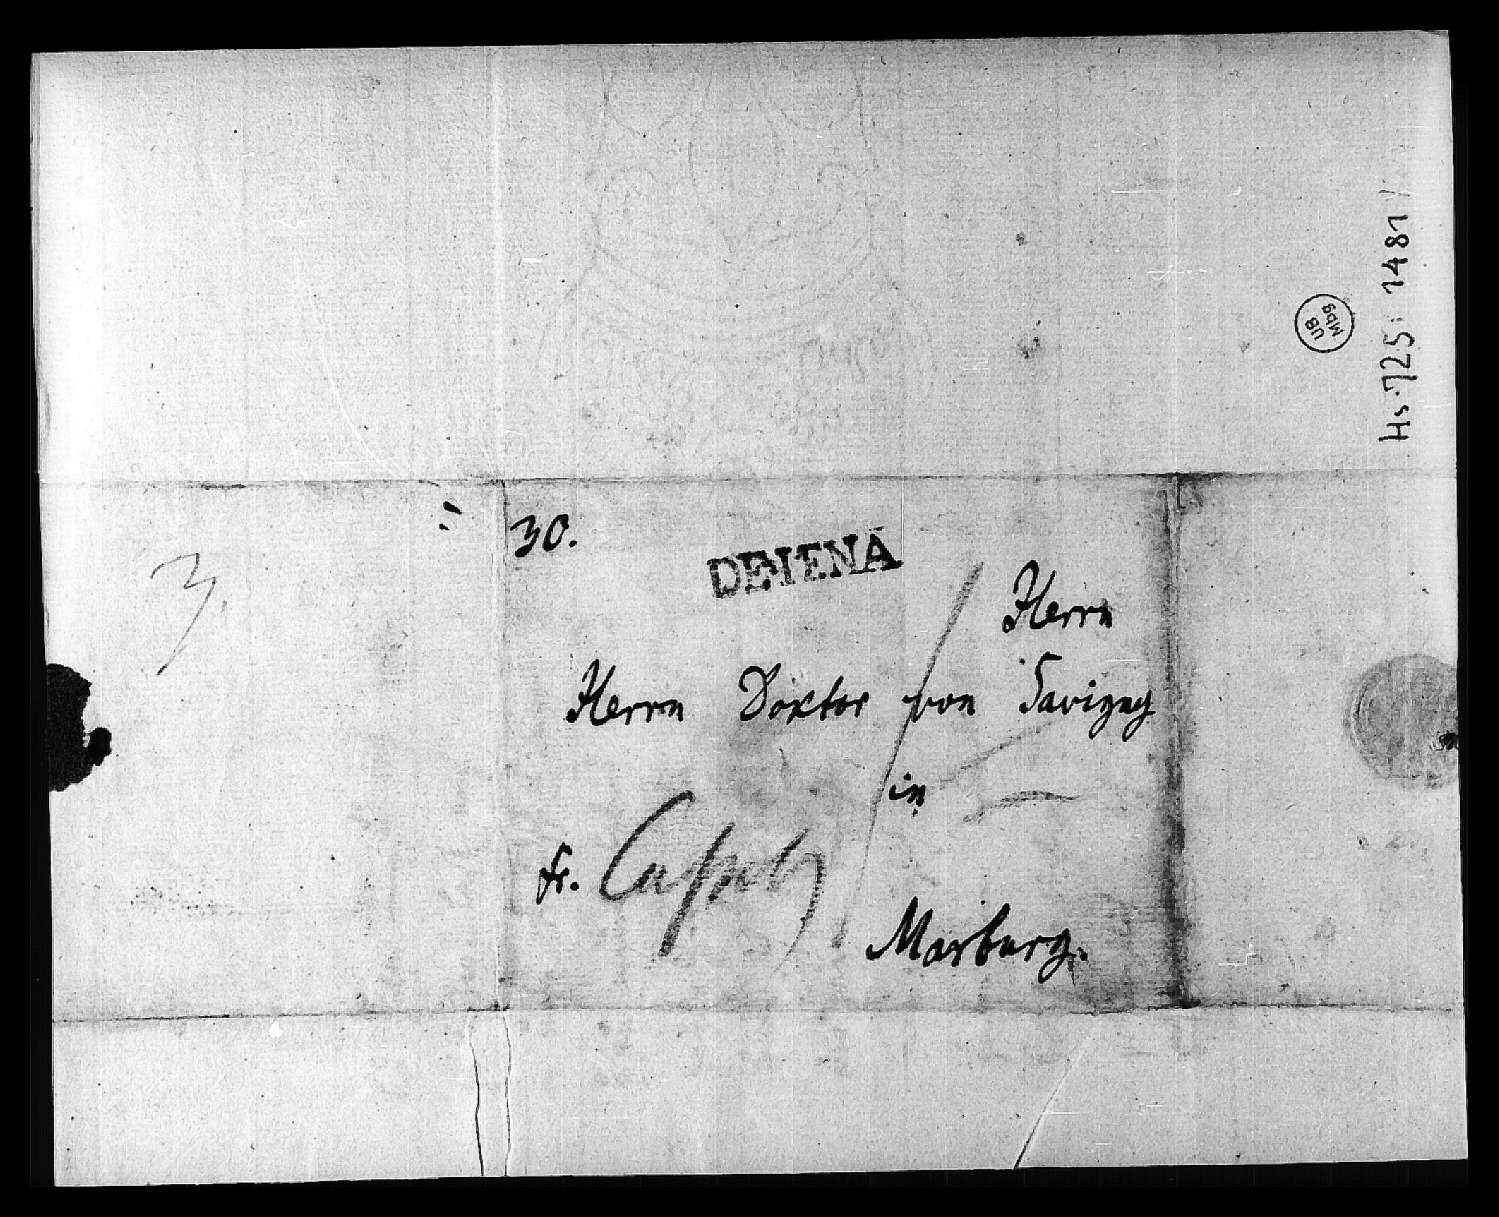 Hs. 725: 1481
UB
Mbg
30.
DE IENA
3.
Herrn
Herrn Doktor von Savigny
in
fr. Cassel
Marburg.